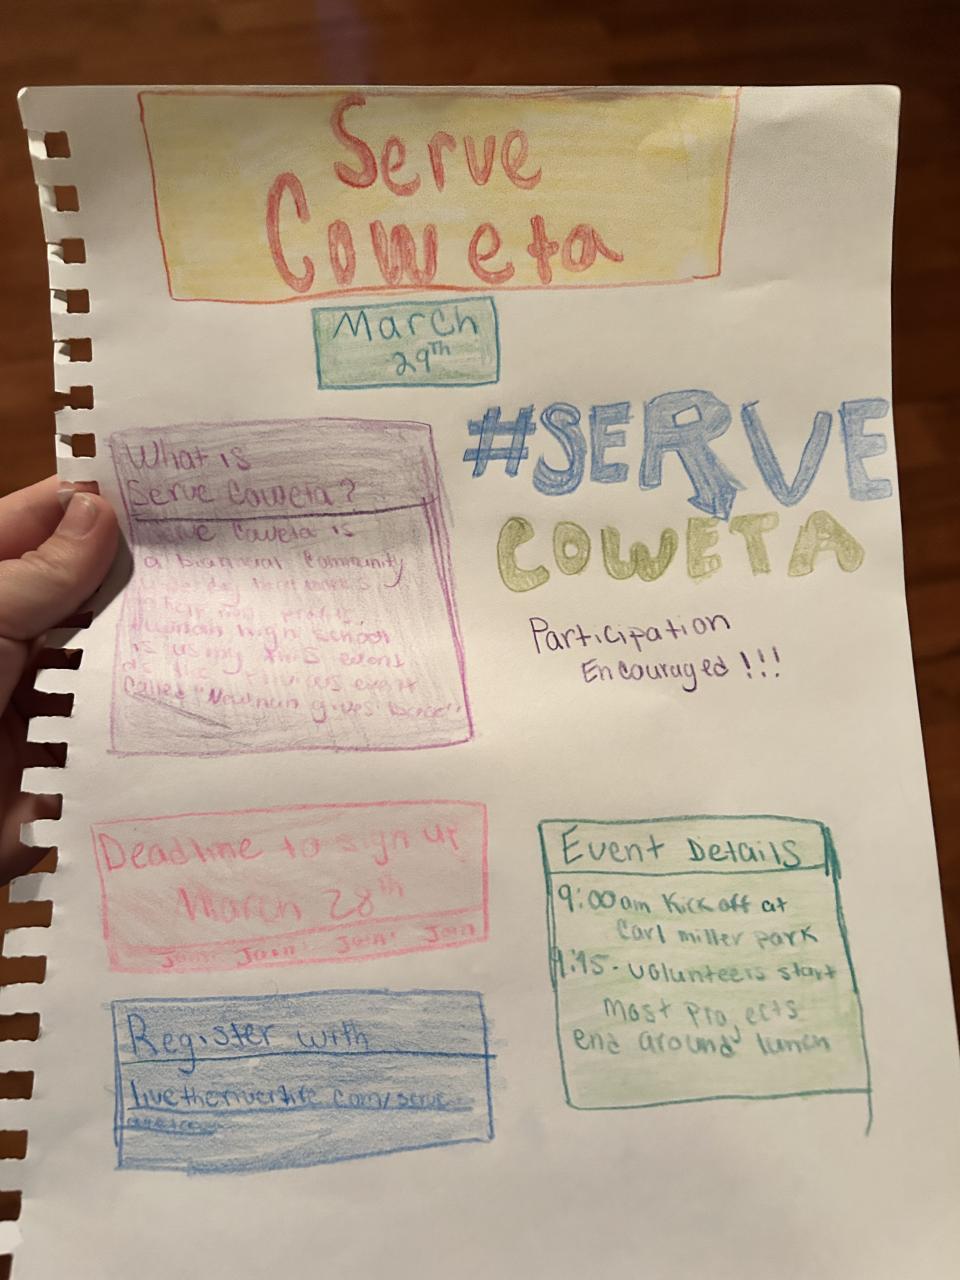 Serve
Coweta
March
29Th
#SERVE
COWETA
Participation
Encouraged!!!
What is
Serve Coweta?
Serve Coweta is
a biannual Community
to help non profits.
Newnan high school
is using this event
as its service event
Called "Newnan gives back"
Deadline to sign up
March 28th
Join! Join! Join! Join
Event Details
9:00am Kick off at
Carl miller park
9:45- volunteers start
Most projects
end around lunch
Register with
livetheriverlife.com/serve-